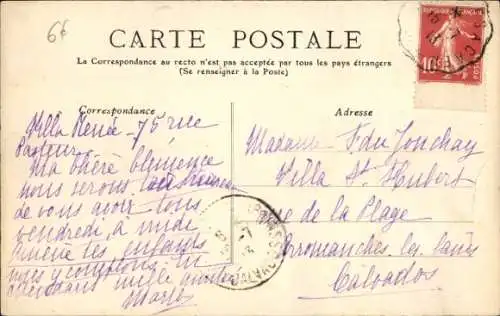 66
CARTE POSTALE
La Correspondance au recto n'est pas acceptée par tous les pays étrangers
(Se renseigner à la Poste)
Correspondance
Adresse
Villa Renée - 75 rue
Pasteur
Ma chère Clémence
nous serons
de vous avoir tous
vendredi à midi
les enfants
nous y comptons. En
mille
Madame F. du Jonchay
Villa St Hubert
rue de la Plage
Arromanches les bains
Calvados
10c